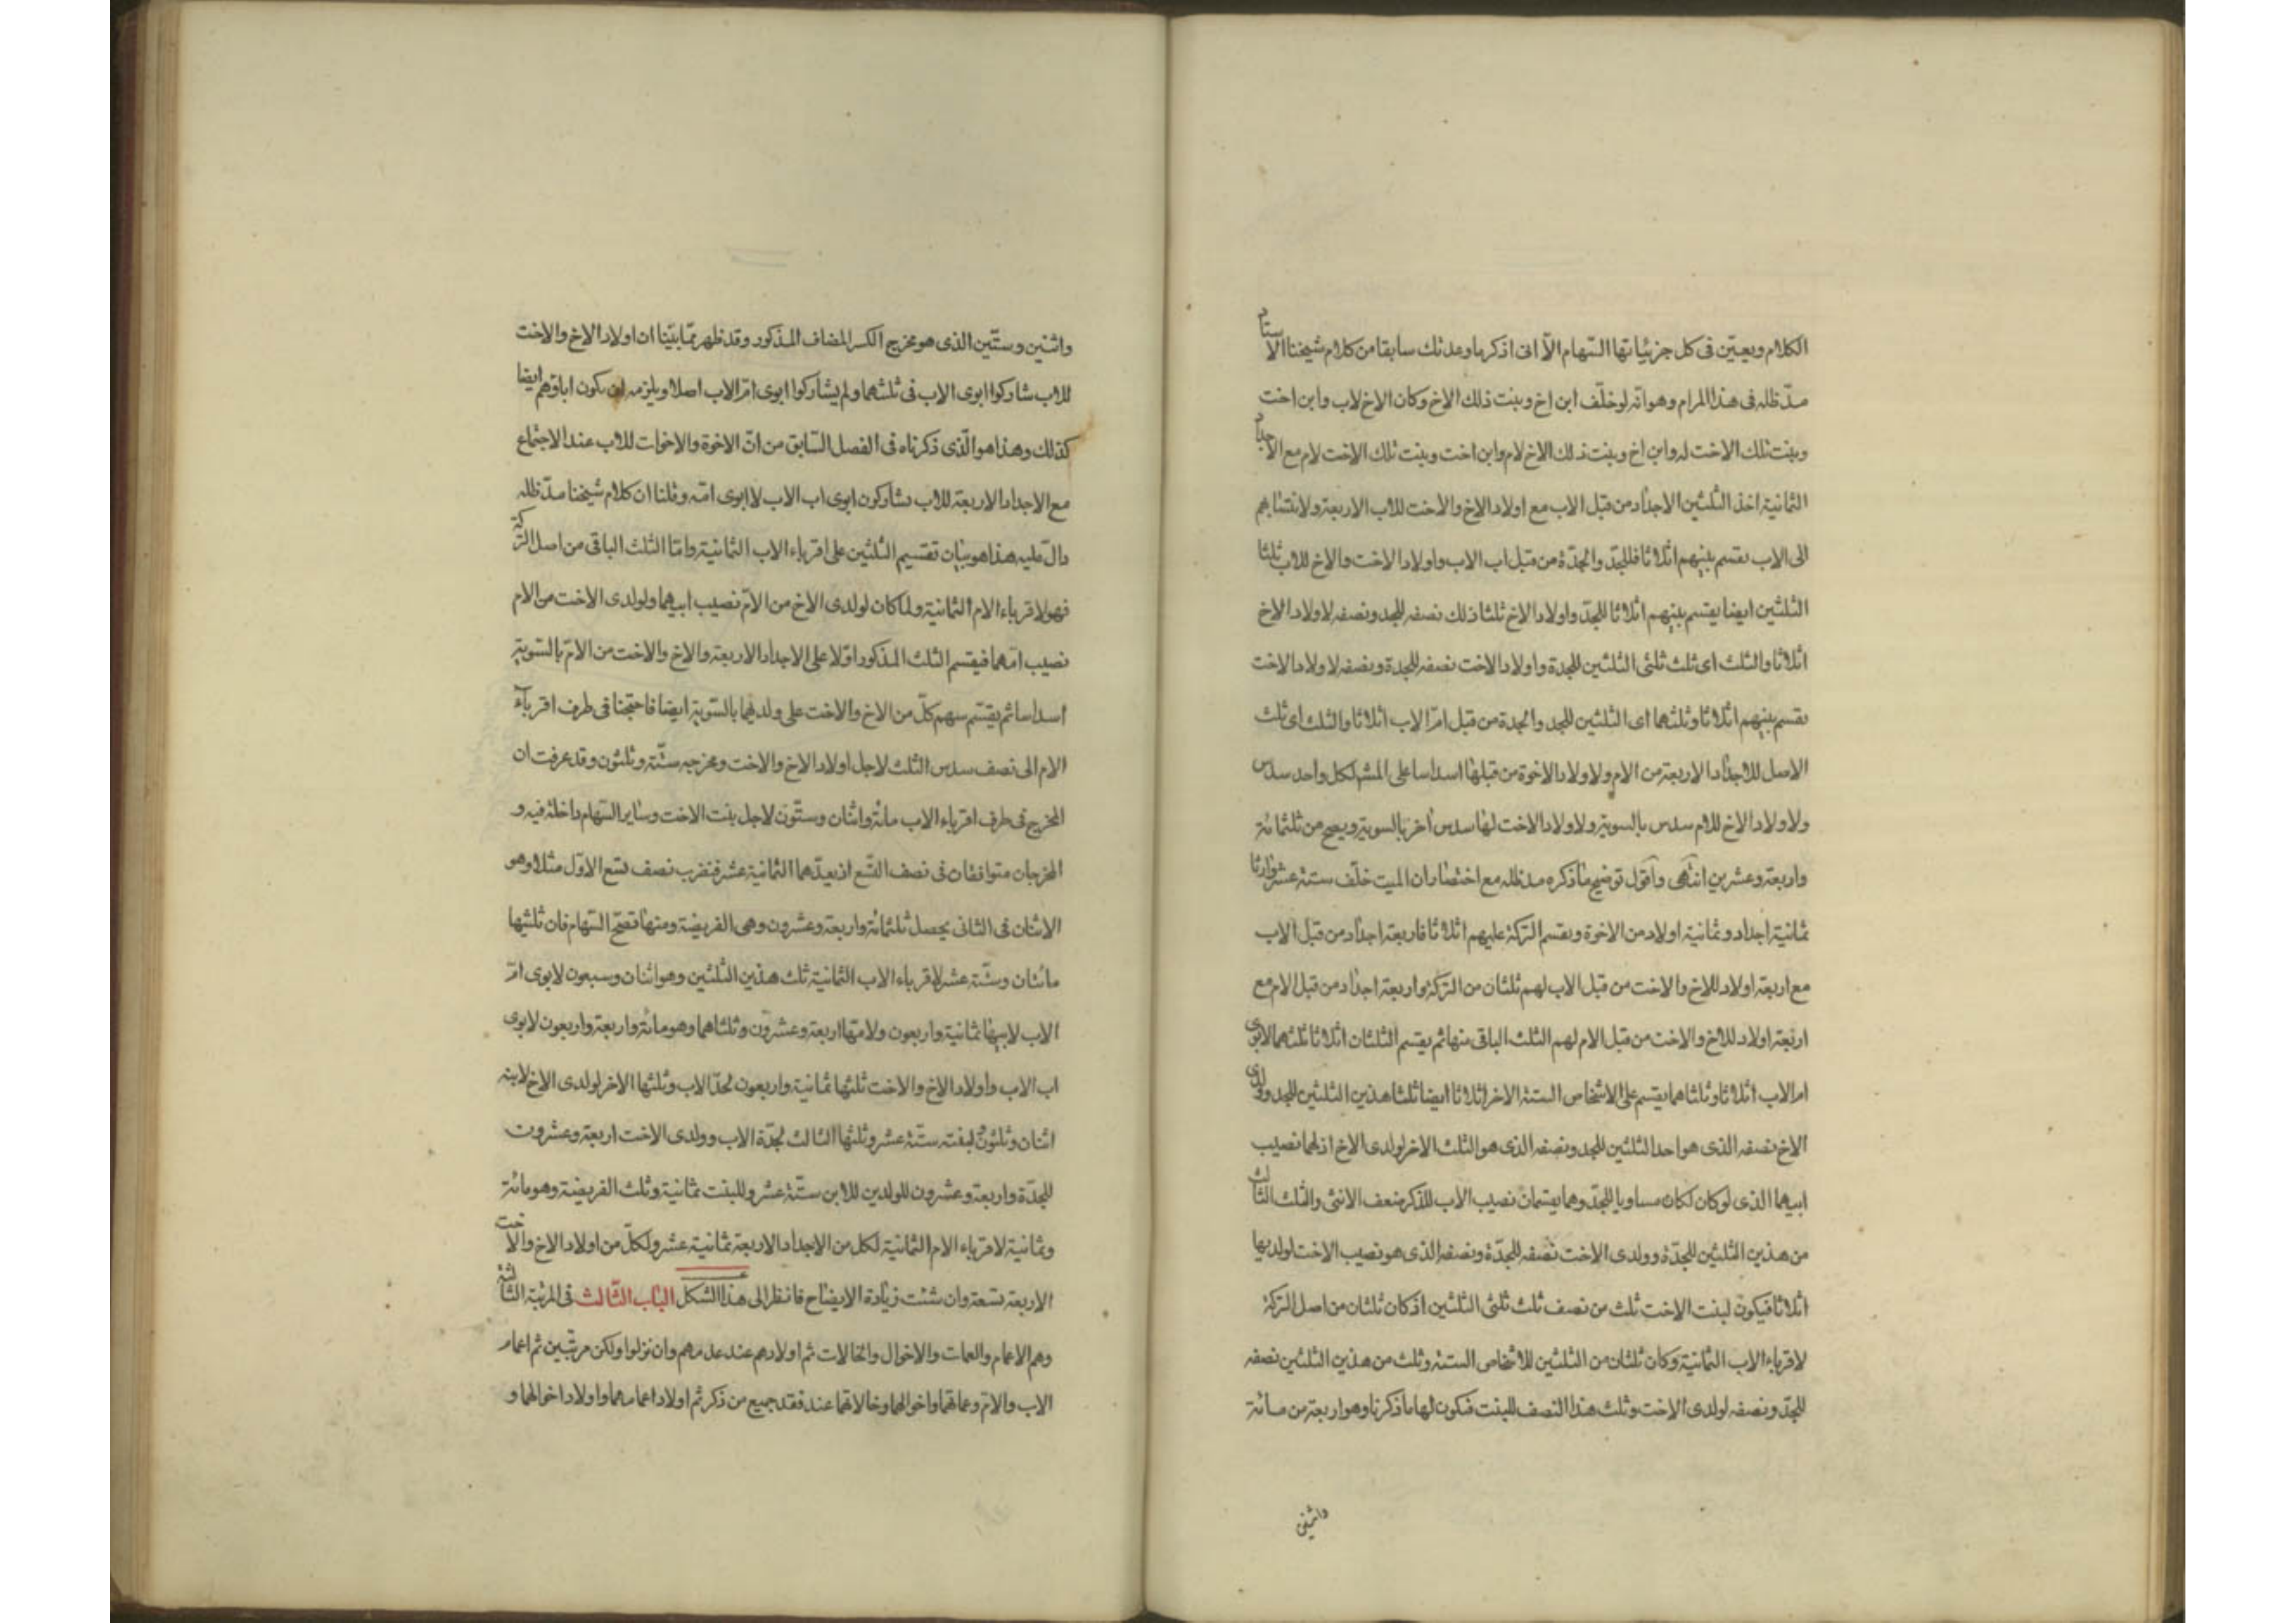 الكلام ويعيّن فى كل جزئياتها السهام الّا انى اذكر ما وعدتك سابقا من كلام شيخنا الاستاد
مدّ ظله فى هذا المرام وهو انه لو خلّف ابن اخ وبنت ذلك الاخ وكان الاخ لاب وابن اخت
وبنت تلك الاخت له وابن اخ وبنت ذلك الاخ لام وابن اخت وبنت تلك الاخت لام مع الاجداد
الثمانية اخذ الثلثين الاجداد من قبل الاب مع اولاد الاخ والاخت للاب الاربعة ولانتسابهم
الى الاب يقسم بينهم اثلاثا فللجدّ والجدّة من قبل اب الاب واولاد الاخت والاخ للاب ثلثا
الثلثين ايضا يقسم بينهم اثلاثا للجدّ واولاد الاخ ثلثا ذلك نصفه للجد ونصفه لاولاد الاخ
اثلاثا والثلث اى ثلث ثلثى الثلثين للجدة واولاد الاخت نصفه للجدة ونصفه لاولاد الاخت
يقسم بينهم اثلاثا وثلثهما اى الثلثين للجد والجدة من قبل امّ الاب اثلاثا والثلث اى ثلث
الاصل للاجداد الاربعة من الام ولاولاد الاخوة من قبلها اسداسا على المشهور لكل واحد سدس
ولاولاد الاخ للام سدس بالسوية ولاولاد الاخت لها سدس آخر بالسوية ويصح من ثلثمائة
واربعة وعشرين انتهى وأقول توضيح ما ذكره مد ظله مع اختصاره ان الميت خلّف ستة عشر وارثا
ثمانية اجداد وثمانية اولاد من الاخوة ويقسم التركة عليهم اثلاثا فاربعة اجداد من قبل الاب
مع اربعة اولاد للاخ والاخت من قبل الاب لهم ثلثان من التركة واربعة اجداد من قبل الام مع
اربعة اولاد للاخ والاخت من قبل الام لهم الثلث الباقى منها ثم يقسم الثلثان اثلاثا ثلثهما لابوى
ام الاب اثلاثا وثلثاهما يقسم على الاشخاص الستة الاخر اثلاثا ايضا ثلثا هذين الثلثين للجد وولدى
الاخ نصفه الذى هو احد الثلثين للجد ونصفه الذى هو الثلث الاخر لولدى الاخ اذ لهما نصيب
ابيهما الذى لو كان لكان مساويا للجدّ وهما يقتسمان نصيب الاب للذكر ضعف الانثى والثلث الثالث
من هذين الثلثين للجدّة وولدى الاخت نصفه للجدّة ونصفه الذى هو نصيب الاخت لولديها
اثلاثا فيكون لبنت الاخت ثلث من نصف ثلث ثلثى الثلثين اذ كان ثلثان من اصل التركة
لاقرباء الاب الثمانية وكان ثلثان من الثلثين للاشخاص الستة وثلث من هذين الثلثين نصفه
للجدّ ونصفه لولدى الاخت وثلث هذا النصف للبنت فيكون لها ما ذكرنا وهو اربعة من مائة
واثنين
واثنين وستّين الذى هو مخرج الكسر المضاف المذكور وقد ظهر ممّا بيّنا ان اولاد الاخ والاخت
للاب شاركوا ابوى الاب فى ثلثهما ولم يشاركوا ابوى امّ الاب اصلا ويلزمه ان يكون اباؤهم ايضا
كذلك وهذا هو الّذى ذكرناه فى الفصل السّابق من انّ الاخوة والاخوات للاب عند الاجتماع
مع الاجداد الاربعة للاب يشاركون ابوى اب الاب لا ابوى امّه وقلنا ان كلام شيخنا مدّ ظله
دالّ عليه هذا هو بيان تقسيم الثلثين على اقرباء الاب الثمانية وامّا الثلث الباقى من اصل التركة
فهو لاقرباء الام الثمانية ولما كان لولدى الاخ من الامّ نصيب ابيهما ولولدى الاخت من الام
نصيب امّهما فيقسم الثلث المذكور اوّلا على الاجداد الاربعة والاخ والاخت من الامّ بالسّوية
اسداسا ثم يقسّم سهم كلّ من الاخ والاخت على ولديهما بالسّوية ايضا فاحتجنا فى طرف اقرباء
الام الى نصف سدس الثلث لاجل اولاد الاخ والاخت ومخرجه ستّة وثلثون وقد عرفت ان
المخرج فى طرف اقرباء الاب مائة واثنان وستّون لاجل بنت الاخت وساير السّهام داخلة فيه و
المخرجان متوافقان فى نصف التّسع اذ يعدّهما الثمانية عشر فنضرب نصف تسع الاوّل مثلا وهو
الاثنان فى الثانى يحصل ثلثمائة واربعة وعشرون وهى الفريضة ومنها تصحّ السّهام فان ثلثيها
مائتان وستّة عشر لاقرباء الاب الثمانية ثلث هذين الثلثين وهو اثنان وسبعون لابوى امّ
الاب لابيها ثمانية واربعون ولامّها اربعة وعشرون وثلثاهما وهو مائة واربعة واربعون لابوى
اب الاب واولاد الاخ والاخت ثلثها ثمانية واربعون لجدّ الاب وثلثها الاخر لولدى الاخ لابنه
اثنان وثلثون ولبنته ستّة عشر وثلثها الثالث لجدّة الاب وولدى الاخت اربعة وعشرون
للجدّة واربعة وعشرون للولدين للابن ستّة عشر وللبنت ثمانية وثلث الفريضة وهو مائة
وثمانية لاقرباء الام الثمانية لكل من الاجداد الاربعة ثمانية عشر ولكلّ من اولاد الاخ والاخت
الاربعة تسعة وان شئت زيادة الايضاح فانظر الى هذا الشكل الباب الثّالث فى المرتبة الثالثة
وهم الاعمام والعمات والاخوال والخالات ثم اولادهم عند عدمهم وان نزلوا ولكن مرتّبين ثم اعمام
الاب والامّ وعماتهما واخوالهما وخالاتهما عند فقد جميع من ذكر ثم اولاد اعمامهما واولاد اخوالهما و